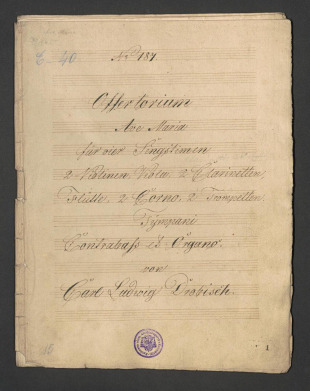 E 40
No 187.
Offertorium
Ave Maria
für vier Singstimen
2 Violinen Viola, 2 Clarinetten
Flütte, 2 Corno, 2 Trompetten
Tympani
Contrabaß & Organo.
von
Carl Ludwig Drobisch.
1